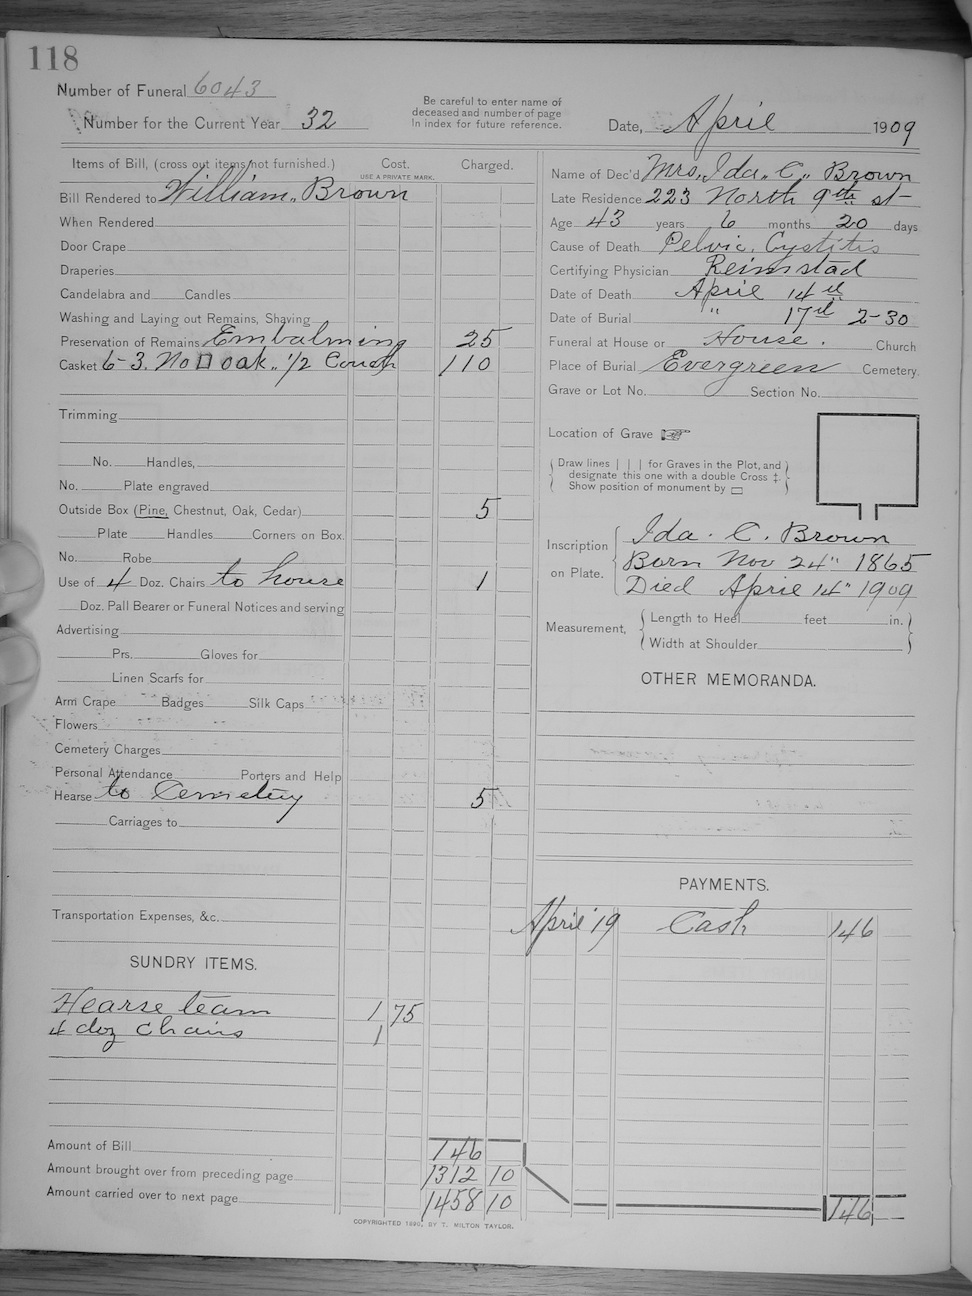 118
Number of Funeral 6043
Number for the Current Year 32
Be careful to enter name of
deceased and number of page
in index for future reference.
Date, April 1909
Items of Bill, (cross out items not furnished.) Cost. Charged.
USE A PRIVATE MARK.
Bill Rendered to William Brown
When Rendered
Door Crape
Draperies
Candelabra and Candles
Washing and Laying out Remains, Shaving
Preservation of Remains Embalming 25
Casket 6-3. No □ oak .. 1/2 Couch 110
Trimming
No. Handles,
No. Plate engraved
Outside Box (Pine, Chestnut, Oak, Cedar) 5
Plate Handles Corners on Box.
No. Robe
Use of 4 Doz. Chairs to house 1
Doz. Pall Bearer or Funeral Notices and serving
Advertising
Prs. Gloves for
Linen Scarfs for
Arm Crape Badges Silk Caps
Flowers
Cemetery Charges
Personal Attendance Porters and Help
Hearse to Cemetery 5
Carriages to
Transportation Expenses, &c.
SUNDRY ITEMS.
Hearse team 1 75
4 doz chairs 1
Amount of Bill 146
Amount brought over from preceding page 1312 10
Amount carried over to next page 1458 10
Name of Dec'd Mrs. Ida. C. Brown
Late Residence 223 North 9th st
Age 43 years 6 months 20 days
Cause of Death Pelvic. Cystitis
Certifying Physician Reimstad
Date of Death April 14th
Date of Burial " 17th 2-30
Funeral at House or House. Church
Place of Burial Evergreen Cemetery.
Grave or Lot No. Section No.
Location of Grave ☞
Draw lines | | | for Graves in the Plot, and
designate this one with a double Cross ‡.
Show position of monument by ▭
Inscription on Plate.
Ida. C. Brown
Born Nov 24" 1865
Died April 14" 1909
Measurement,
Length to Heel feet in.
Width at Shoulder
OTHER MEMORANDA.
PAYMENTS.
April 19 Cash 146
146
COPYRIGHTED 1890, BY T. MILTON TAYLOR.